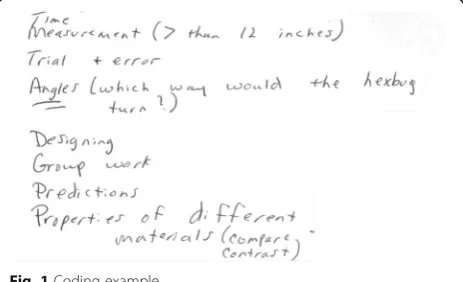 Time
Measurement (> than 12 inches)
Trial + error
Angles (which way would the hexbug
turn?)
Designing
Group work
Predictions
Properties of different
materials (compare,
contrast)
Fig. 1 Coding example